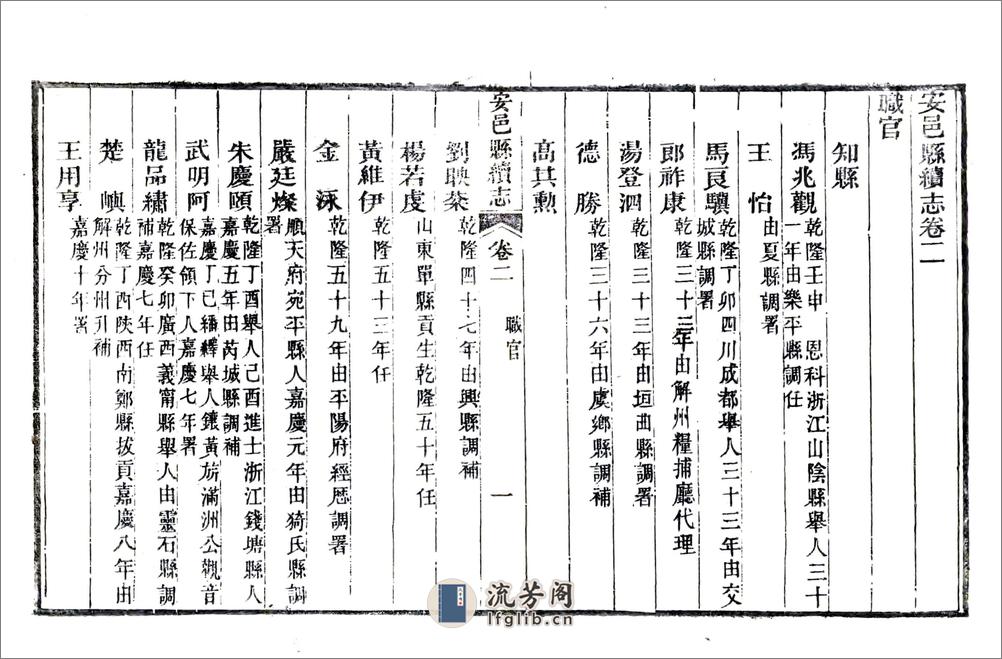 安邑縣續志卷二
職官
知縣
馮兆觀 乾隆壬申 恩科浙江山陰縣舉人三十
一年由樂平縣調任
王 怡 由夏縣調署
馬良驥 乾隆丁卯四川成都舉人三十三年由交
城縣調署
郎祚康 乾隆三十三年由解州糧捕廳代理
湯登泗 乾隆三十三年由垣曲縣調署
德 勝 乾隆三十六年由虞鄉縣調補
高其勲
安邑縣續志 卷二 職官 一
劉映棻 乾隆四十七年由興縣調補
楊若虔 山東單縣貢生乾隆五十年任
黃維伊 乾隆五十三年任
金 泳 乾隆五十九年由平陽府經歷調署
嚴廷燦 順天府宛平縣人嘉慶元年由猗氏縣調
署
朱慶頤 乾隆丁酉舉人己酉進士浙江錢塘縣人
嘉慶五年由芮城縣調補
武明阿 嘉慶丁巳繙繹舉人鑲黃旂滿洲公觀音
保佐領下人嘉慶七年署
龍品繡 乾隆癸卯廣西義甯縣舉人由靈石縣調
補嘉慶七年任
楚 嶼 乾隆丁酉陝西南鄭縣拔貢嘉慶八年由
解州分州升補
王用享 嘉慶十年署
流芳阁
lfglib.cn